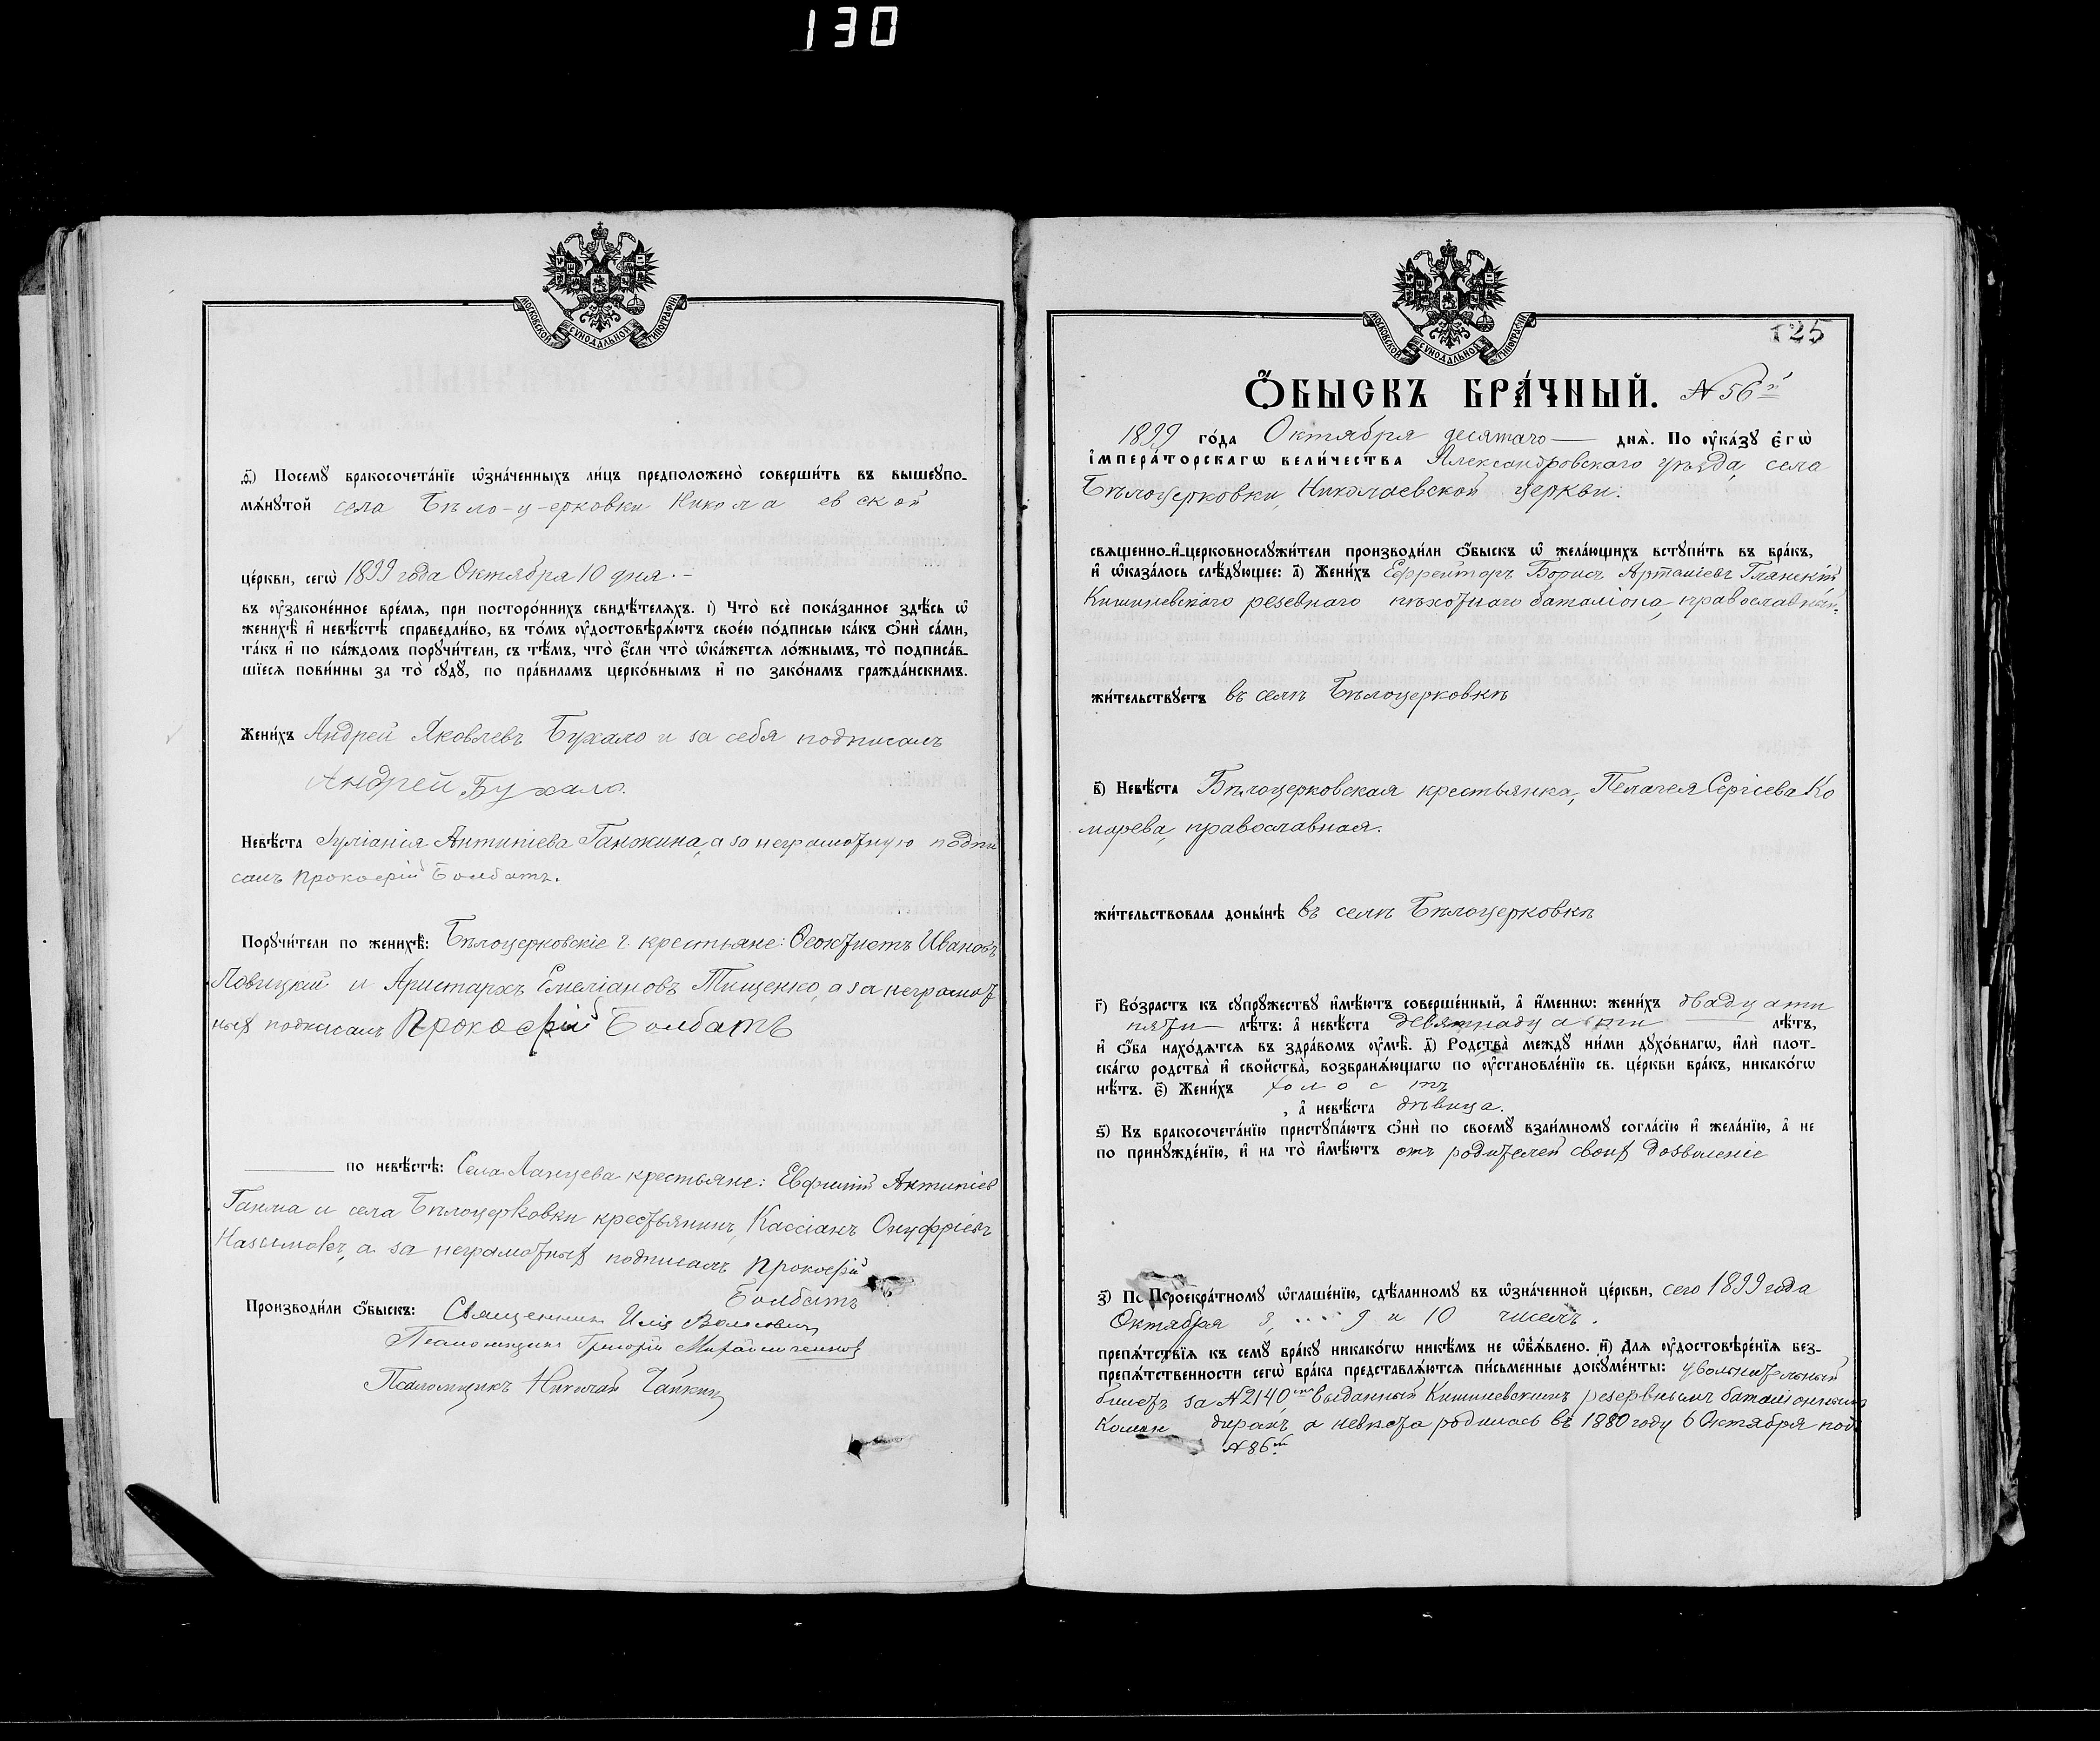 130
МОСКОВСКОЙ СѴНОДАЛЬНОЙ ТИПОГРАФІИ
д҃і) Посемꙋ бракосочета́нїе ѡ҆зна́ченныхъ ли́цъ предположено̀ соверши́ть въ вышеꙋпо-
мѧ́нꙋтой села Бѣло-ц-ерковки Никола евской
це́ркви, сегѡ̀ 1899 года Октября 10 дня. -
въ ᲂу҆зако́ненное вре́мѧ, при посторо́ннихъ свидѣ́телѧхъ. і) Что̀ всѐ пока́занное здѣ́сь ѡ҆
женихѣ̀ и҆ невѣ́стѣ справедли́во, въ то́мъ ᲂу҆достовѣрѧ́ютъ свое́ю по́дписью ка́къ ѻ҆нѝ са́ми,
та́къ и҆ по ка́ждомъ порꙋчи́тели, съ тѣ́мъ, что̀ є҆́сли что̀ ѡ҆ка́жетсѧ ло́жнымъ, то̀ подписа́в-
шїесѧ пови́нны за то̀ сꙋдꙋ̀, по пра́виламъ церко́внымъ и҆ по зако́намъ гражда́нскимъ.
Жени́хъ Андрей Яковлевъ Бухало и за себя подписалъ
Андрей Бухало.
Невѣ́ста Іуліанія Антипіева Ганжина, а за неграмотную подпи
салъ Прокофій Болбатъ.
Порꙋчи́тели по женихѣ̀: Бѣлоцерковскіе крестьяне: Ѳеоктистъ Ивановъ
Ловицкій и Аристархъ Емеліановъ Тищенко, а за неграмот
ныхъ подписалъ Прокофій Болбатъ
по невѣ́стѣ: Села Ланцева крестьяне: Евфимій Антипіев
Ганжа и села Бѣлоцерковки крестьянинъ, Кассіанъ Онуфріевъ
Назимовъ, а за неграмотныхъ подписалъ Прокофій
Болбатъ
Производи́ли ѻ҆́быскъ: Священникъ Илія Волосовичъ
Псаломщикъ Григорій
Псаломщикъ Николай Чайкинъ
МОСКОВСКОЙ СѴНОДАЛЬНОЙ ТИПОГРАФІИ
125
Ѻ҆́БЫСКЪ БРА́ЧНЫЙ. № 56й
1899 го́да Октября десятаго — днѧ̀. По ᲂу҆ка́зꙋ є҆гѡ̀
і҆мпера́торскагѡ вели́чества Александровскаго уѣзда, села
Бѣлоцерковки, Николаевской церкви.
свѧщенно-и҆-церковнослꙋжи́тели производи́ли ѻ҆́быскъ ѡ҆ жела́ющихъ встꙋпи́ть въ бра́къ,
и҆ ѡ҆каза́лось слѣ́дꙋющее: а҃) Жени́хъ Ефрейторъ Борисъ
Кишиневскаго резевнаго пѣхотнаго баталіона, православный.
жи́тельствꙋетъ въ селѣ Бѣлоцерковкѣ
в҃) Невѣ́ста Бѣлоцерковская крестьянка, Пелагея Сергіева Ко
марева, православная.
жи́тельствовала доны́нѣ въ селѣ Бѣлоцерковкѣ
г҃) Во́зрастъ къ сꙋпрꙋ́жествꙋ и҆мѣ́ютъ соверше́нный, а҆ и҆́меннѡ: жени́хъ двадцати
пяти — лѣ́тъ: а҆ невѣ́ста девятнадцати — лѣ́тъ,
и҆ ѻ҆́ба нахо́дѧтсѧ въ здра́вомъ ᲂу҆мѣ̀. д҃) Родства̀ междꙋ̀ ни́ми дꙋхо́внагѡ, и҆лѝ плот-
ска́гѡ родства̀ и҆ сво́йства̀, возбранѧ́ющагѡ по ᲂу҆становле́нїю св. це́ркви бра́къ, никако́гѡ
нѣ́тъ. є҃) Жени́хъ холостъ
, а҆ невѣ́ста дѣвица.
ѕ҃) Къ бракосочета́нїю пристꙋпа́ютъ ѻ҆нѝ по своемꙋ̀ взаи́мномꙋ согла́сїю и҆ жела́нїю, а҆ не
по принꙋжде́нїю, и҆ на то̀ и҆мѣ́ютъ отъ родителей своихъ дозволеніе
з҃) По Троекра́тномꙋ ѡ҆глаше́нїю, сдѣ́ланномꙋ въ ѡ҆зна́ченной це́ркви, сего 1899 года
Октября 3, ... 9 и 10 чиселъ.
препѧ́тствїѧ къ семꙋ̀ бра́кꙋ никако́гѡ никѣ́мъ не ѡ҆б̾ѧ́влено. и҃) Длѧ ᲂу҆достовѣре́нїѧ без-
препѧ́тственности сегѡ̀ бра́ка представлѧ́ютсѧ пи́сьменные докꙋме́нты: увольнительный
билетъ за №2140мъ выданный Кишиневскимъ резервнымъ баталіоннымъ
Коман диромъ, а невѣста родилась въ 1880 году 6 Октября подъ
№86мъ